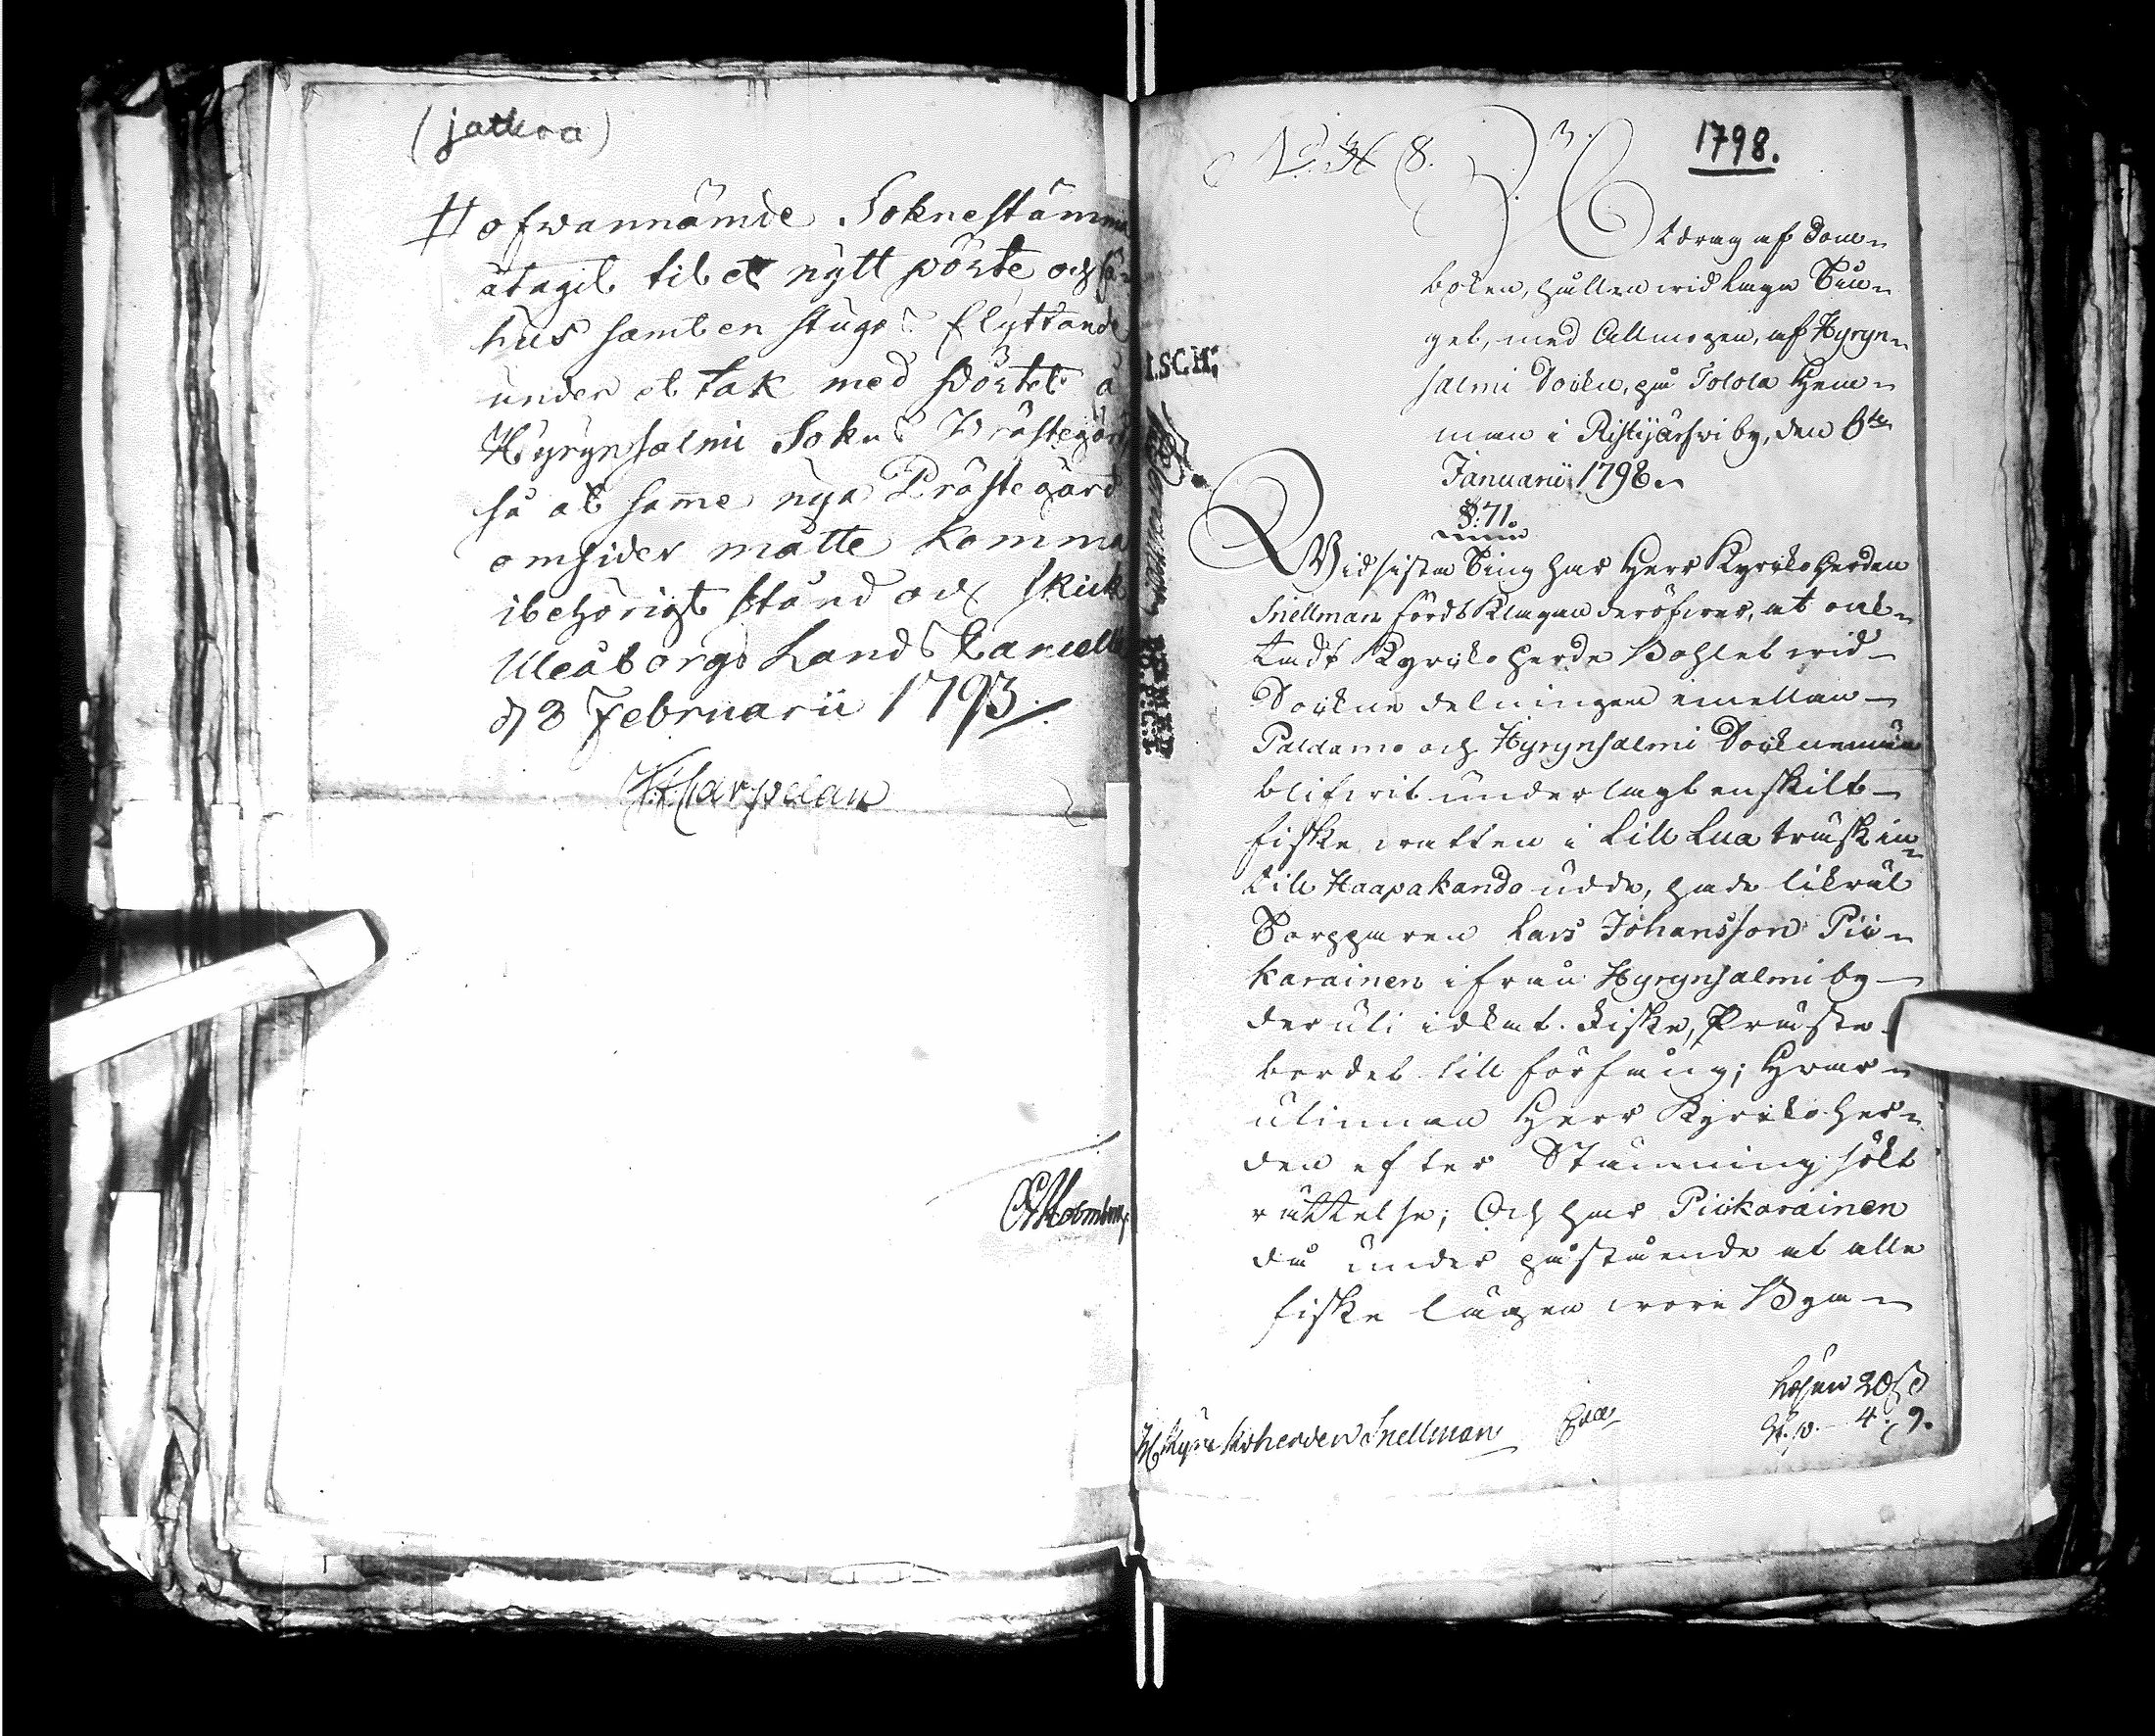 (jatkoa)
# ofwannämde Soknestämma
åtagit til et nytt pörte och få-
hus samt en stugas flyttande
under et tak med pörtet å
Hyrynsalmi Sokns Prästegård
så at samme nya Prästegård
omsider måtte komma
i behörigt stånd och skick
Uleåborgs Lands Cancellie
d 8 Februarii 1793.
Carpelan
Holmbom
N:o 8.
1798.
Utdrag af Dom-
boken, hållen wid Laga Tin-
get, med Allmogen, af Hyryn-
salmi Sokn, på Tolola Hem-
man i Ristijärfwi by, den 8de
Januarii 1798.
§: 71.
Wid sista Ting har Herr Kyrkoherden
Snellman fördt Klagan deröfwer, at oak-
tadt Kyrkoherde Bohlet wid
Sokne delningen emellan
Paldamo och Hyrynsalmi Soknemän
blifwit underlagt enskilt
fiske watten i Lill Lua träsk in-
till Haapakando udde, hade likwäl
Torpparen Lars Johansson Pii-
karainen ifrån Hyrynsalmi by
deruti idkat fiske, Präste
bordet till förfång; Hwar-
utinnan Herr Kyrkoher-
den efter Stämning sökt
rättelse; Och har Piikarainen
då under påstående at alla
fiske lägen wore Bya-
Lösen 20 ß
4: 9.
H. Kyrkoherden Snellman